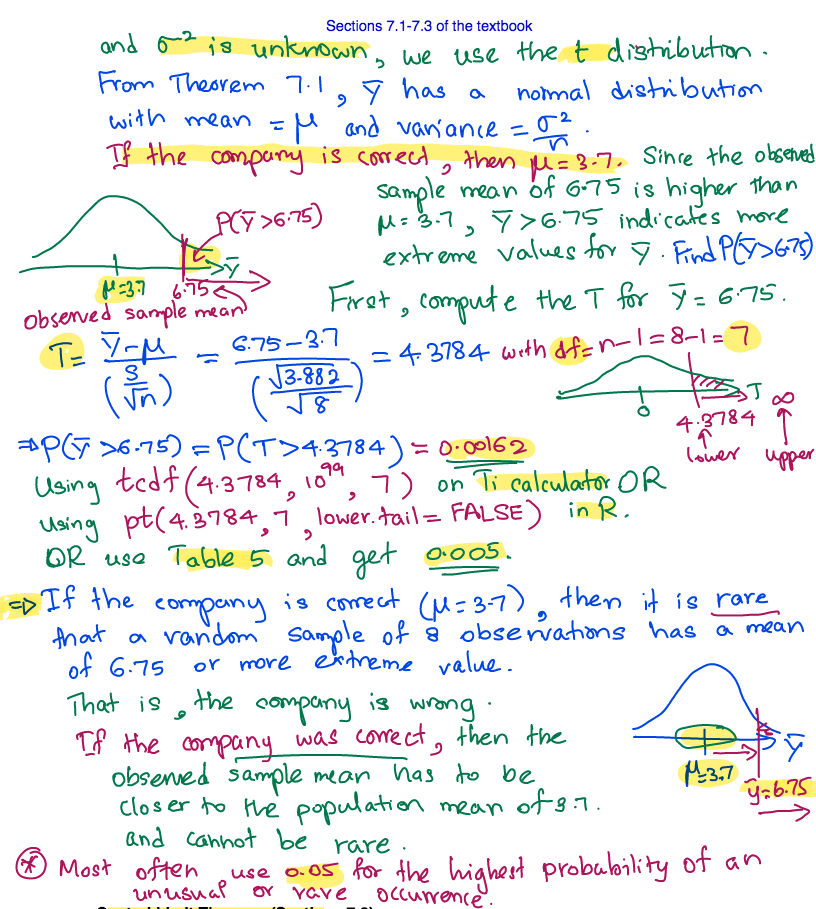 Sections 7.1-7.3 of the textbook
and σ² is unknown, we use the t distribution.
From Theorem 7.1, ȳ has a normal distribution
with mean = μ and variance = σ²/n.
If the company is correct, then μ = 3.7. Since the observed
sample mean of 6.75 is higher than
μ = 3.7, ȳ > 6.75 indicates more
extreme values for ȳ. Find P(ȳ > 6.75)
P(ȳ > 6.75)
ȳ
μ=3.7 6.75
observed sample mean
First, compute the T for ȳ = 6.75.
T = (ȳ - μ)/(S/√n) = (6.75 - 3.7)/(√3.882/√8) = 4.3784 with df = n-1 = 8-1 = 7
T
0 4.3784 ∞
lower upper
⇒ P(ȳ > 6.75) = P(T > 4.3784) = 0.00162
Using tcdf(4.3784, 10⁹⁹, 7) on Ti calculator OR
using pt(4.3784, 7, lower.tail = FALSE) in R.
OR use Table 5 and get 0.005.
⇒ If the company is correct (μ = 3.7), then it is rare
that a random sample of 8 observations has a mean
of 6.75 or more extreme value.
That is, the company is wrong.
If the company was correct, then the
observed sample mean has to be
closer to the population mean of 3.7.
and cannot be rare.
ȳ
μ=3.7
ȳ=6.75
* Most often use 0.05 for the highest probability of an
unusual or rare occurrence.